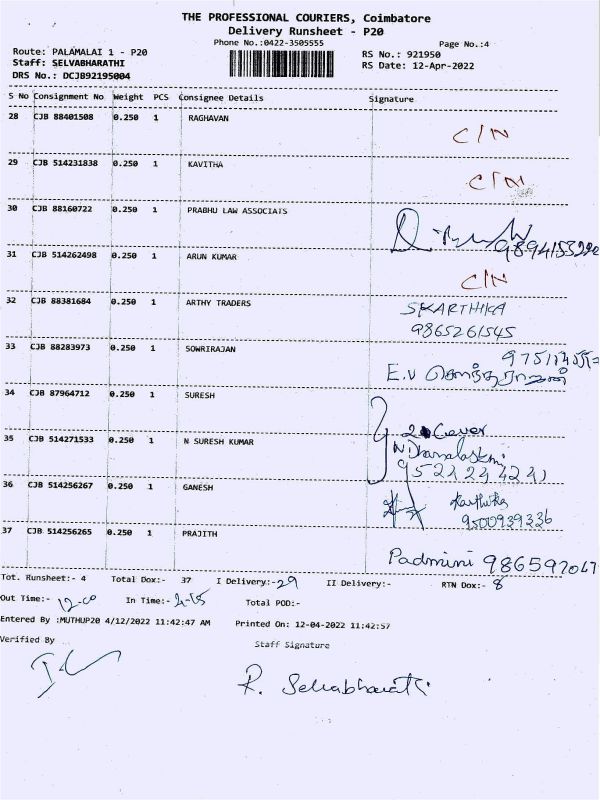 THE PROFESSIONAL COURIERS, Coimbatore
Delivery Runsheet - P20
Phone No.:0422-3505555
Page No.:4
Route: PALAMALAI 1 - P20
RS No.: 921950
Staff: SELVABHARATHI
RS Date: 12-Apr-2022
DRS No.: DCJB92195004
S No Consignment No Weight PCS Consignee Details Signature
28 CJB 88401508 0.250 1 RAGHAVAN C/N
29 CJB 514231838 0.250 1 KAVITHA C/N
30 CJB 88160722 0.250 1 PRABHU LAW ASSOCIATS
31 CJB 514262498 0.250 1 ARUN KUMAR C/N
32 CJB 88381684 0.250 1 ARTHY TRADERS SKARTHIKA
9865261545
33 CJB 88283973 0.250 1 SOWRIRAJAN
E.V
34 CJB 87964712 0.250 1 SURESH
2 Cover
35 CJB 514271533 0.250 1 N SURESH KUMAR
36 CJB 514256267 0.250 1 GANESH Karthika
9500939336
37 CJB 514256265 0.250 1 PRAJITH
Padmini
Tot. Runsheet:- 4 Total Dox:- 37 I Delivery:- 29 II Delivery:- RTN Dox:- 8
Out Time:- 12-00 In Time:- 4-15 Total POD:-
Entered By :MUTHUP20 4/12/2022 11:42:47 AM Printed On: 12-04-2022 11:42:57
Verified By Staff Signature
R. Selvabharathi